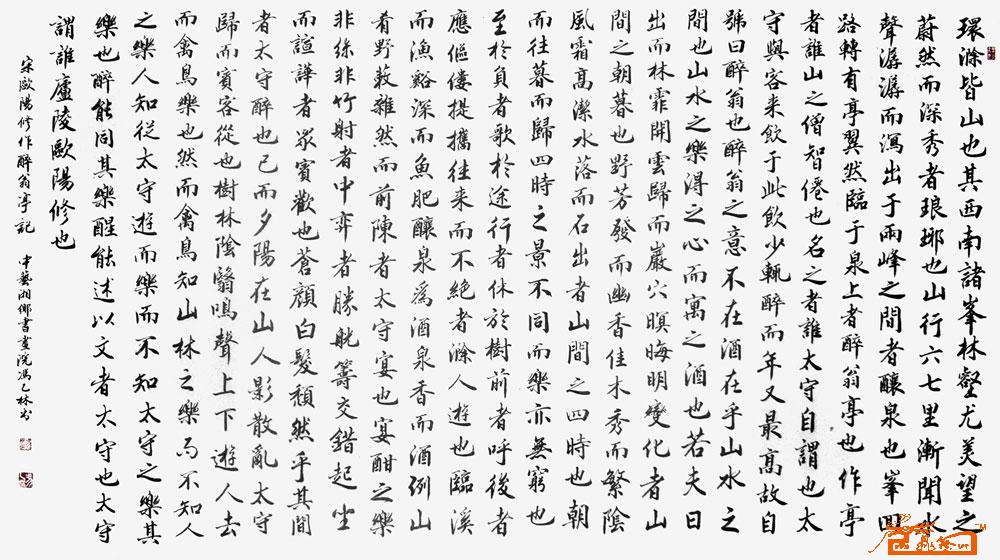 環滁皆山也其西南諸峯林壑尤美望之
蔚然而深秀者琅琊也山行六七里漸聞水
聲潺潺而瀉出于兩峰之間者釀泉也峯回
路轉有亭翼然臨于泉上者醉翁亭也作亭
者誰山之僧智僊也名之者誰太守自謂也太
守與客来飲于此飲少輒醉而年又最高故自
號曰醉翁也醉翁之意不在酒在乎山水之
間也山水之樂得之心而寓之酒也若夫日
出而林霏開雲歸而巖穴暝晦明變化者山
間之朝暮也野芳發而幽香佳木秀而繁陰
風霜高潔水落而石出者山間之四時也朝
而往暮而歸四時之景不同而樂亦無窮也
至於負者歌於途行者休於樹前者呼後者
應傴僂提攜往来而不絕者滁人遊也臨溪
而漁谿深而魚肥釀泉為酒泉香而酒洌山
肴野蔌雜然而前陳者太守宴也宴酣之樂
非絲非竹射者中弈者勝觥籌交錯起坐
而諠譁者眾賓歡也蒼顏白髮頹然乎其間
者太守醉也已而夕陽在山人影散亂太守
歸而賓客從也樹林陰翳鳴聲上下遊人去
而禽鳥樂也然而禽鳥知山林之樂而不知人
之樂人知從太守遊而樂而不知太守之樂其
樂也醉能同其樂醒能述以文者太守也太守
謂誰廬陵歐陽修也
宋歐陽修作醉翁亭記 中藝湘鄉書畫院馮乙林书